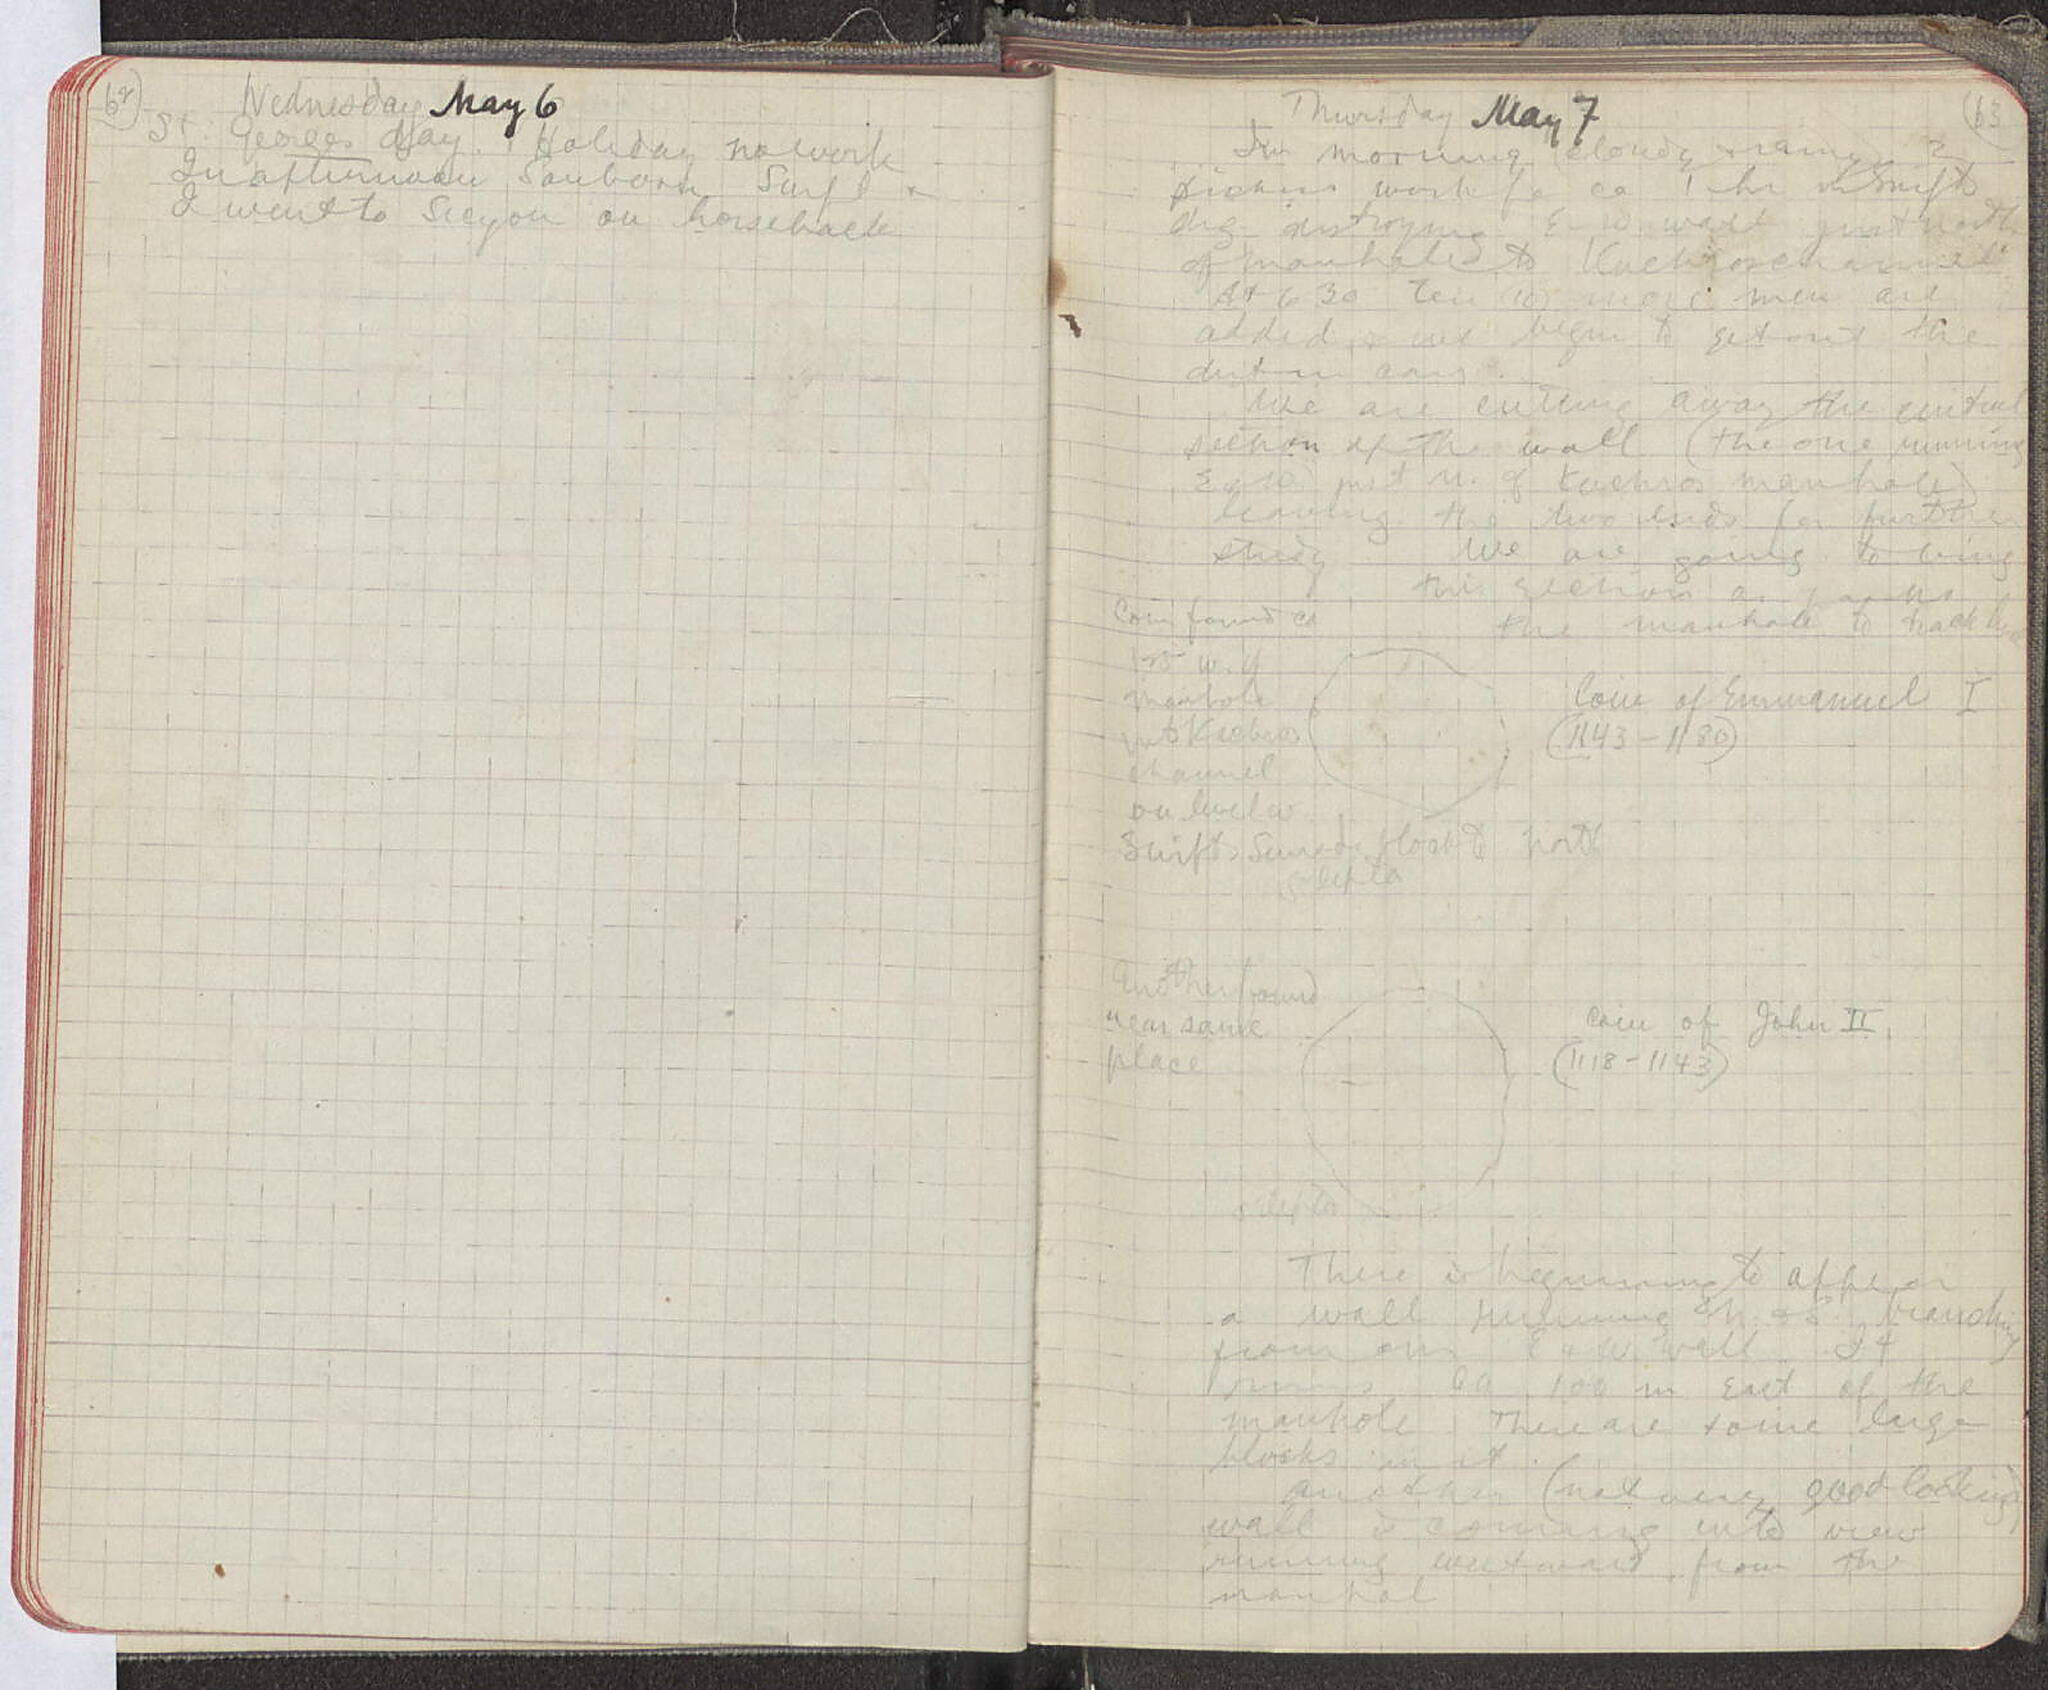 62
Wednesday May 6
St. Georges day. Holiday no work
In afternoon Sanborn Swift &
I went to Sicyon on horseback
63
Thursday May 7
In morning cloudy & rainy 2
pickers work for ca 1 hr in Swift's
dig destroying E-W wall just north
of manhole to Kuchros channel
At 6 30 ten (10) more men are
added & we begin to get out the
dirt in cars.
We are cutting away the central
section of the wall (the one running
E-W just N. of Kuchros manhole)
leaving the two ends for further
study We are going to bring
this section as far as
the manhole to track
Coin found ca
w. of
manhole
into Kuchros
channel
on level w.
Swift's Sunade float to North
Coin of Emmanuel I
(1143-1180)
Another found
near same
place
Coin of John II.
(1118-1143)
There is beginning to appear
a wall running N. & S. branching
from our E & W wall It
runs ca 1.00 m East of the
manhole. There are some large
blocks in it.
Another (not very good looking)
wall is coming into view
running westward from the
manhol